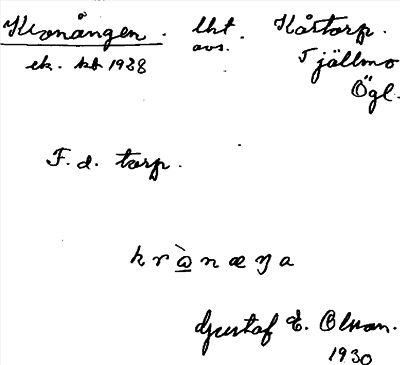 Kronängen. lht. Kårtorp.
avs.
ek. kb 1938 Tjällmo
Ögl.
F. d. torp.
kr̀ωnæŋa
Gustaf E. Olson.
1930